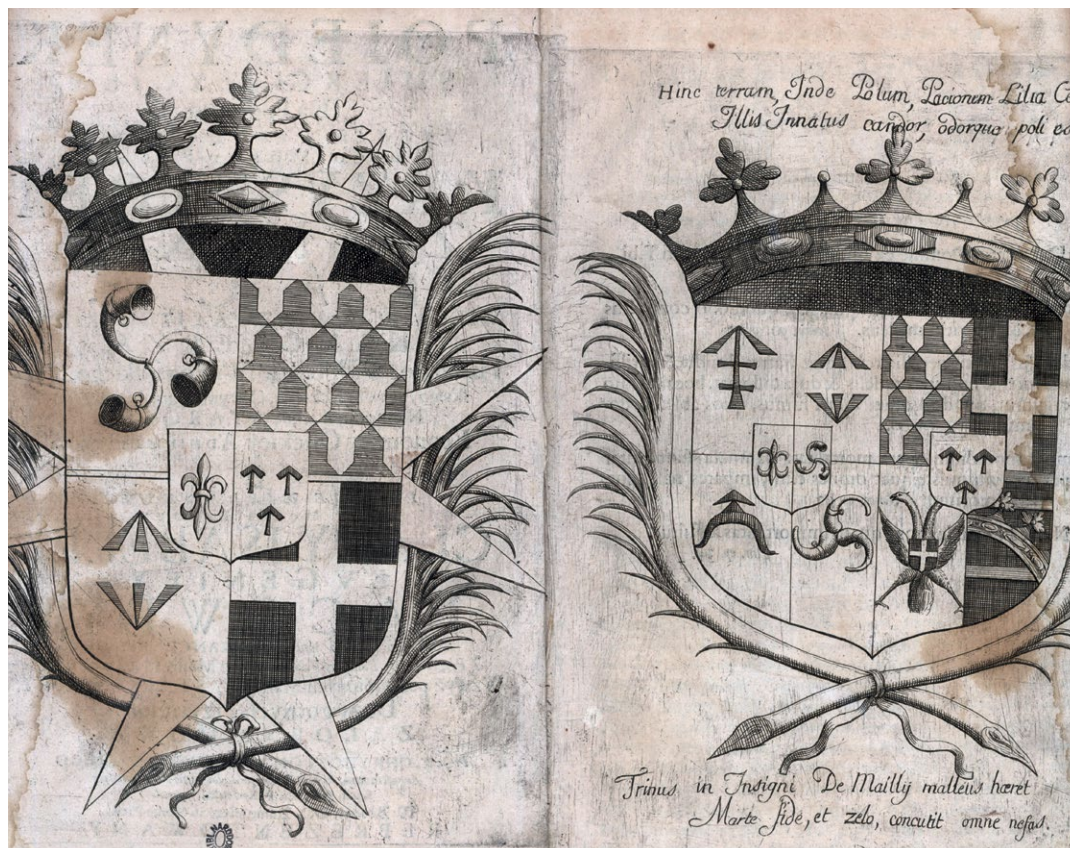 Hinc terram, Inde Polum, Pacionem Lilia
Illis Innatus candor, odorque poli
Trinus in Insigni De Maillij malleus hæret
Marte fide, et zelo, concutit omne nefas.